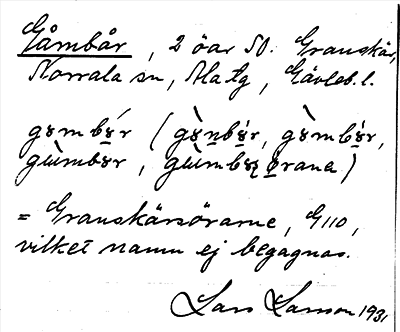 Gåmbår, 2 öar SO. Granskär,
Norrala sn, Ala tg, Gävleb. l.
gɤmbɤ̱́r (gɤ̀ṉbɤ̱́r, gɤ̀mbɤ̱́r,
gɯ̀mbɤr, gɯ̀mbɤʐ ø̱rana)
= Granskärsörarne, G 110,
vilket namn ej begagnas.
Lars Larsson 1931